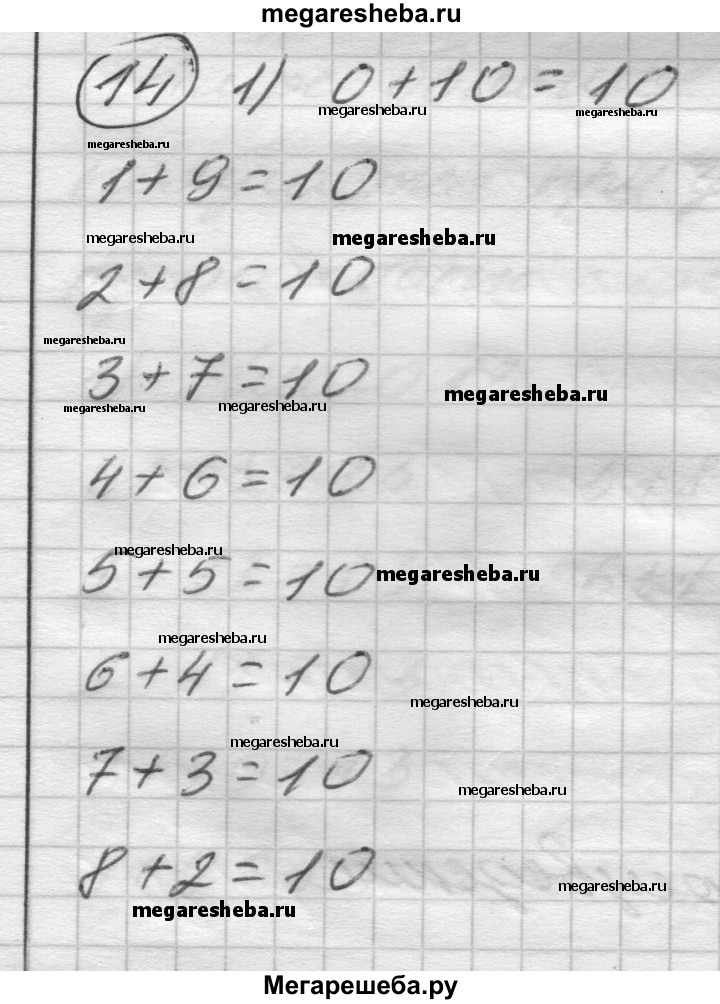 megaresheba.ru
14 1) 0+10=10
megaresheba.ru megaresheba.ru
megaresheba.ru
1+9=10
megaresheba.ru megaresheba.ru
2+8=10
megaresheba.ru
3+7=10
megaresheba.ru
megaresheba.ru megaresheba.ru
4+6=10
megaresheba.ru
5+5=10 megaresheba.ru
megaresheba.ru
6+4=10
megaresheba.ru
megaresheba.ru
7+3=10
megaresheba.ru
8+2=10
megaresheba.ru
megaresheba.ru
Мегарешеба.ру